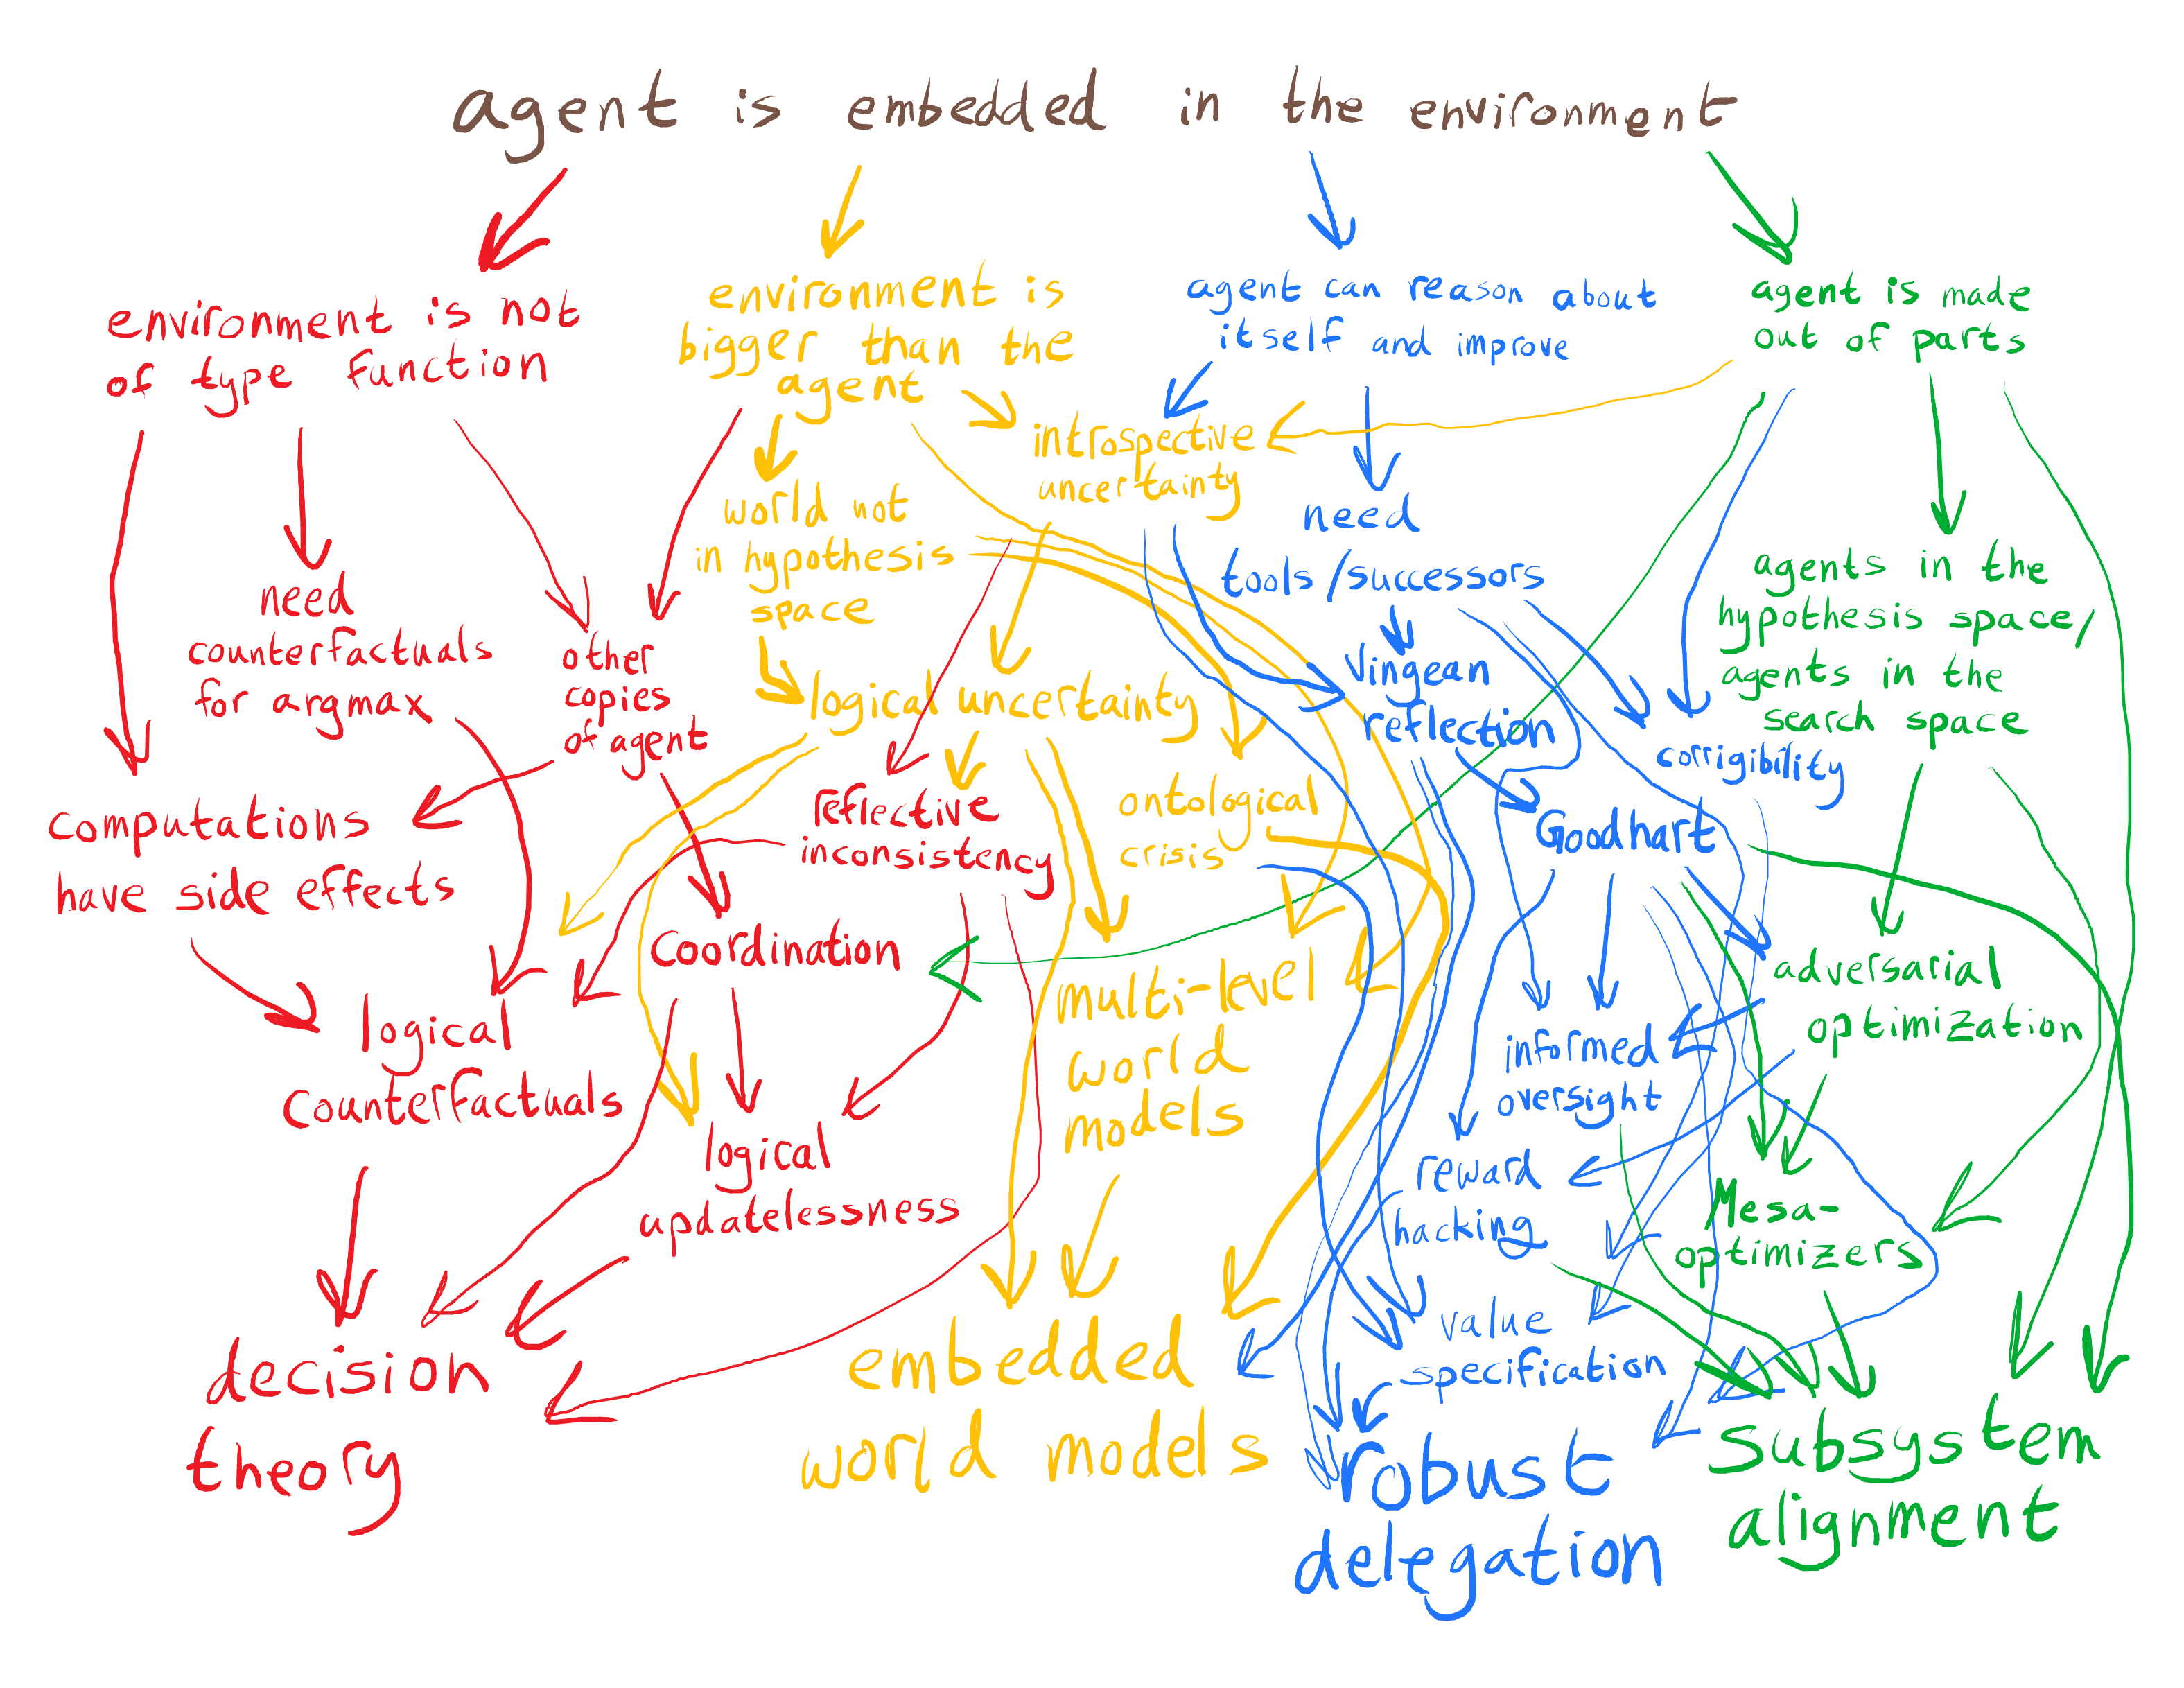 agent is embedded in the environment
environment is not
of type function
environment is
bigger than the
agent
agent can reason about
itself and improve
agent is made
out of parts
introspective
uncertainty
world not
in hypothesis
space
need
tools/successors
agents in the
hypothesis space/
agents in the
search space
need
counterfactuals
for argmax
other
copies
of agent
logical uncertainty
Vingean
reflection
corrigibility
computations
have side effects
reflective
inconsistency
ontological
crisis
Goodhart
Coordination
multi-level
world
models
adversarial
optimization
logical
counterfactuals
informed
oversight
logical
updatelessness
reward
hacking
Mesa-
optimizers
value
specification
decision
theory
embedded
world models
robust
delegation
subsystem
alignment